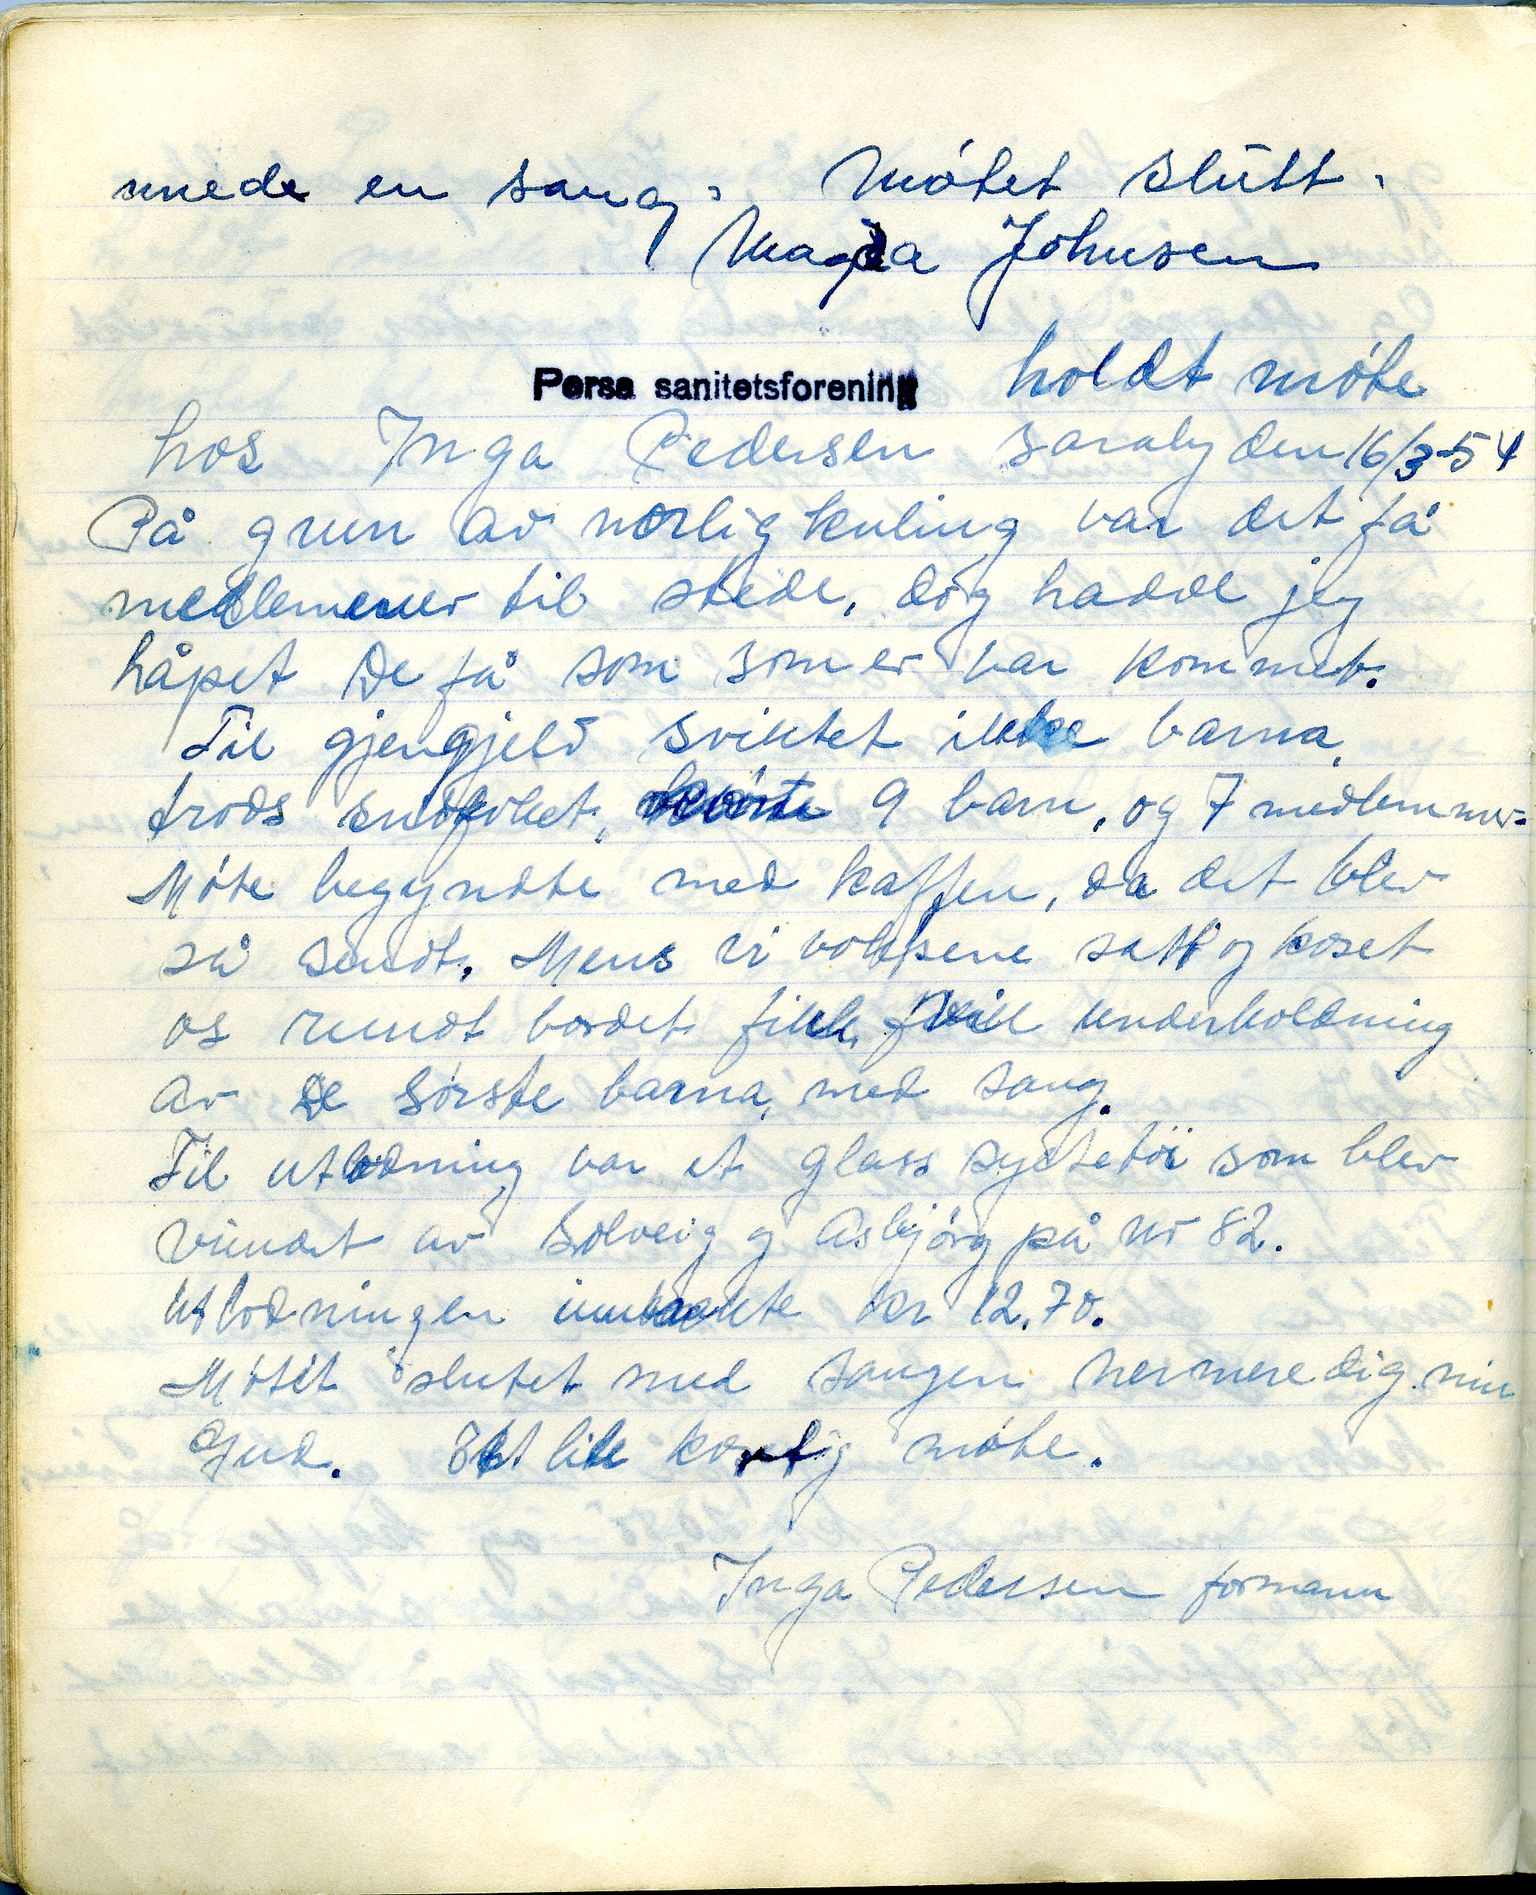 mede en sang. Møtet slutt.
Magda Johnsen
Porsa sanitetsforening holdt møte
hos Inga Pedersen Saraby den 16/3-54
På grun av norlig kuling var det få
medlemmer til stede, dog hadde jeg
håpet De få som som er var kommet.
Til gjengjeld sviktet ikke barna,
trods snøfoket, 9 barn, og 7 medlemmer-
Møte begyndte med kaffen, da det blev
så sendt. Mens vi voksene satt og koset
os rundt bordet fikk vi underholdning
av De største barna, med sang.
Til utlodning var et glass syltetöi som blev
vundet av Solveig g Asbjörg på nr 82.
Utlodningen innbrakte kr 12.70.
Møtet slutet med sangen nermere dig min
Gud. Ett lite kortig møte.
Inga Pedersen formann